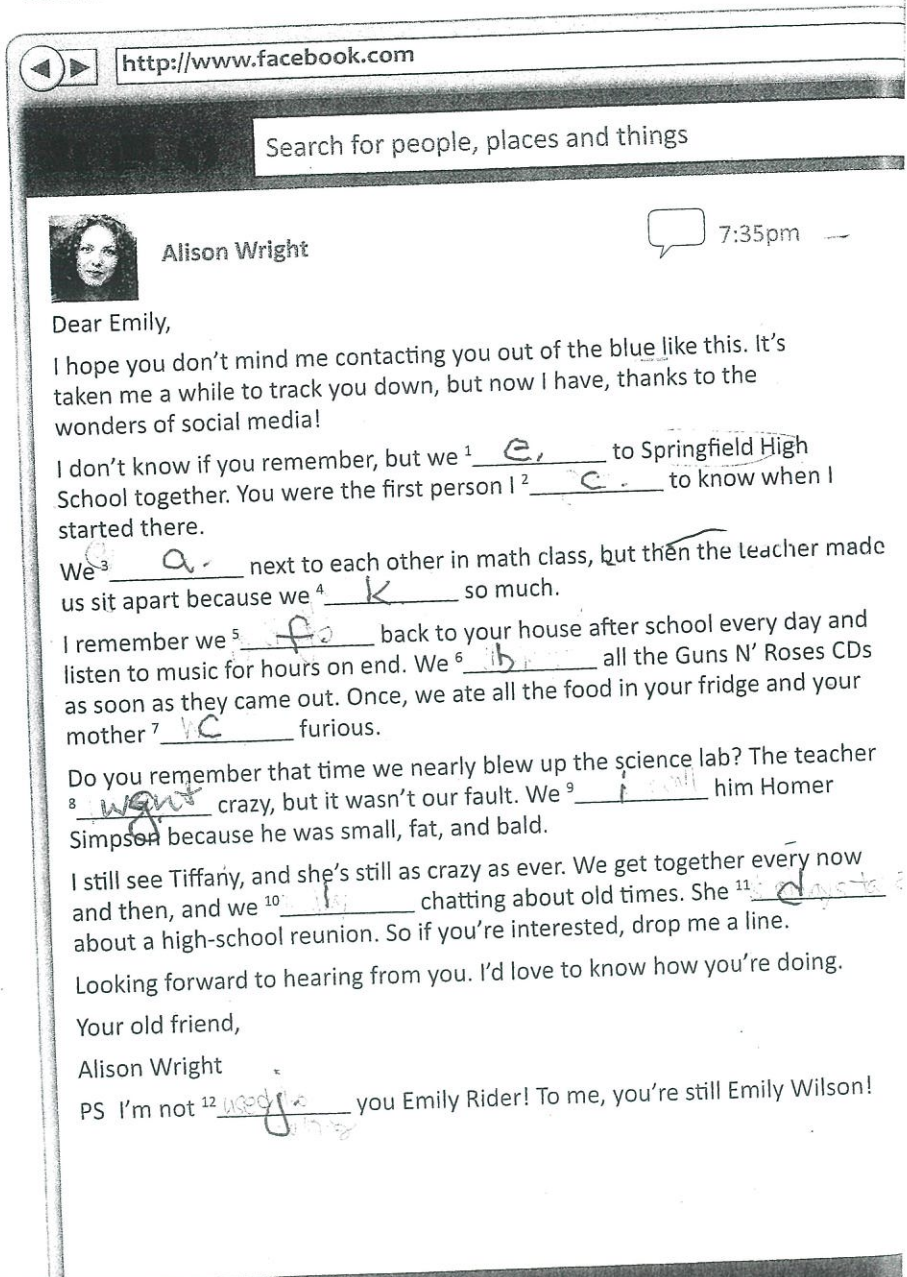 http://www.facebook.com
Search for people, places and things
Alison Wright 7:35pm
Dear Emily,
I hope you don't mind me contacting you out of the blue like this. It's
taken me a while to track you down, but now I have, thanks to the
wonders of social media!
I don't know if you remember, but we 1 e, to Springfield High
School together. You were the first person I 2 c. to know when I
started there.
We 3 a. next to each other in math class, but then the teacher made
us sit apart because we 4 k so much.
I remember we 5 f back to your house after school every day and
listen to music for hours on end. We 6 b all the Guns N' Roses CDs
as soon as they came out. Once, we ate all the food in your fridge and your
mother 7 c furious.
Do you remember that time we nearly blew up the science lab? The teacher
8 went crazy, but it wasn't our fault. We 9 i him Homer
Simpson because he was small, fat, and bald.
I still see Tiffany, and she's still as crazy as ever. We get together every now
and then, and we 10 l chatting about old times. She 11 d
about a high-school reunion. So if you're interested, drop me a line.
Looking forward to hearing from you. I'd love to know how you're doing.
Your old friend,
Alison Wright
PS I'm not 12 used j you Emily Rider! To me, you're still Emily Wilson!